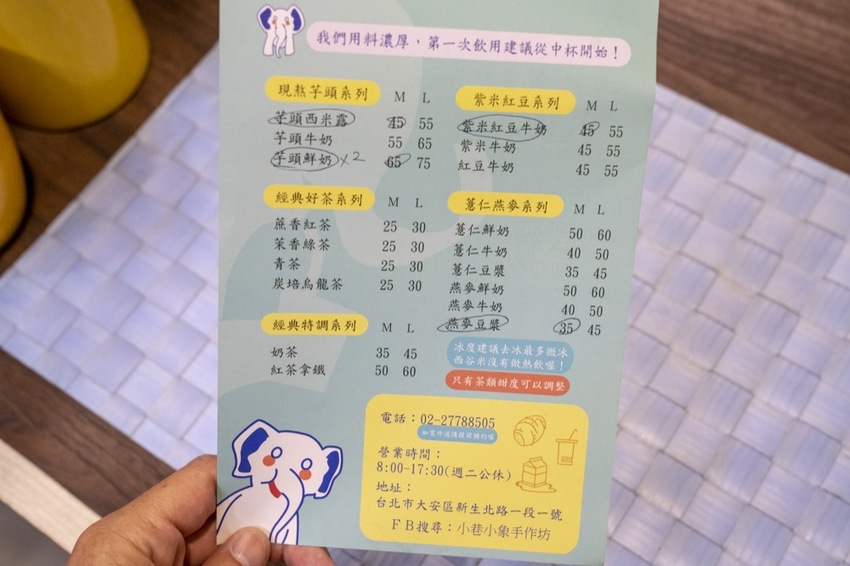 我們用料濃厚，第一次飲用建議從中杯開始！
現熬芋頭系列 M L
芋頭西米露 45 55
芋頭牛奶 55 65
芋頭鮮奶 x2 65 75
經典好茶系列 M L
蔗香紅茶 25 30
茉香綠茶 25 30
青茶 25 30
炭焙烏龍茶 25 30
經典特調系列 M L
奶茶 35 45
紅茶拿鐵 50 60
紫米紅豆系列 M L
紫米紅豆牛奶 45 55
紫米牛奶 45 55
紅豆牛奶 45 55
薏仁燕麥系列 M L
薏仁鮮奶 50 60
薏仁牛奶 40 50
薏仁豆漿 35 45
燕麥鮮奶 50 60
燕麥牛奶 40 50
燕麥豆漿 35 45
冰度建議去冰最多微冰
西谷米沒有做熱飲喔！
只有茶類甜度可以調整
電話：02-27788505
如需外送請提前預約喔
營業時間：
8:00-17:30(週二公休)
地址：
台北市大安區新生北路一段一號
FB搜尋：小巷小象手作坊